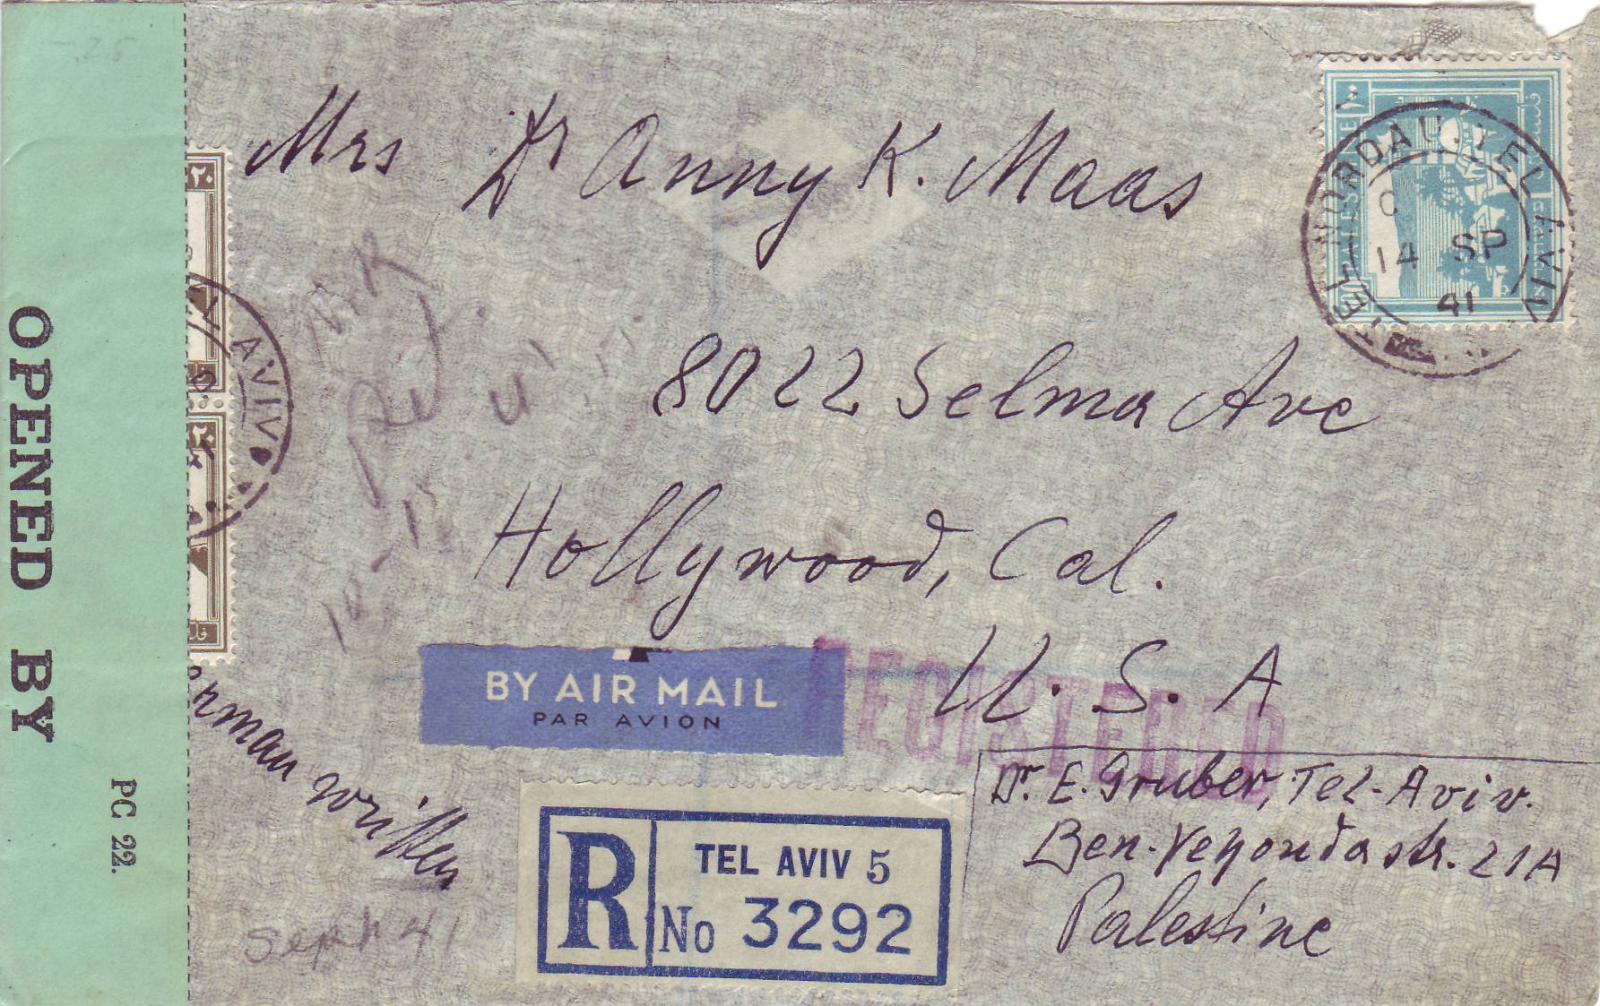 Mrs Dr Anny K. Maas
8022 Selma Ave
Hollywood, Cal.
U. S. A
Dr. E. Gruber, Tel-Aviv.
Ben-Yehouda str. 21A
Palestine
OPENED BY
PC 22.
BY AIR MAIL
PAR AVION
REGISTERED
R
TEL AVIV 5
No 3292
NORDAU TEL AVIV
14 SP
41
AVIV
written
Sept 41